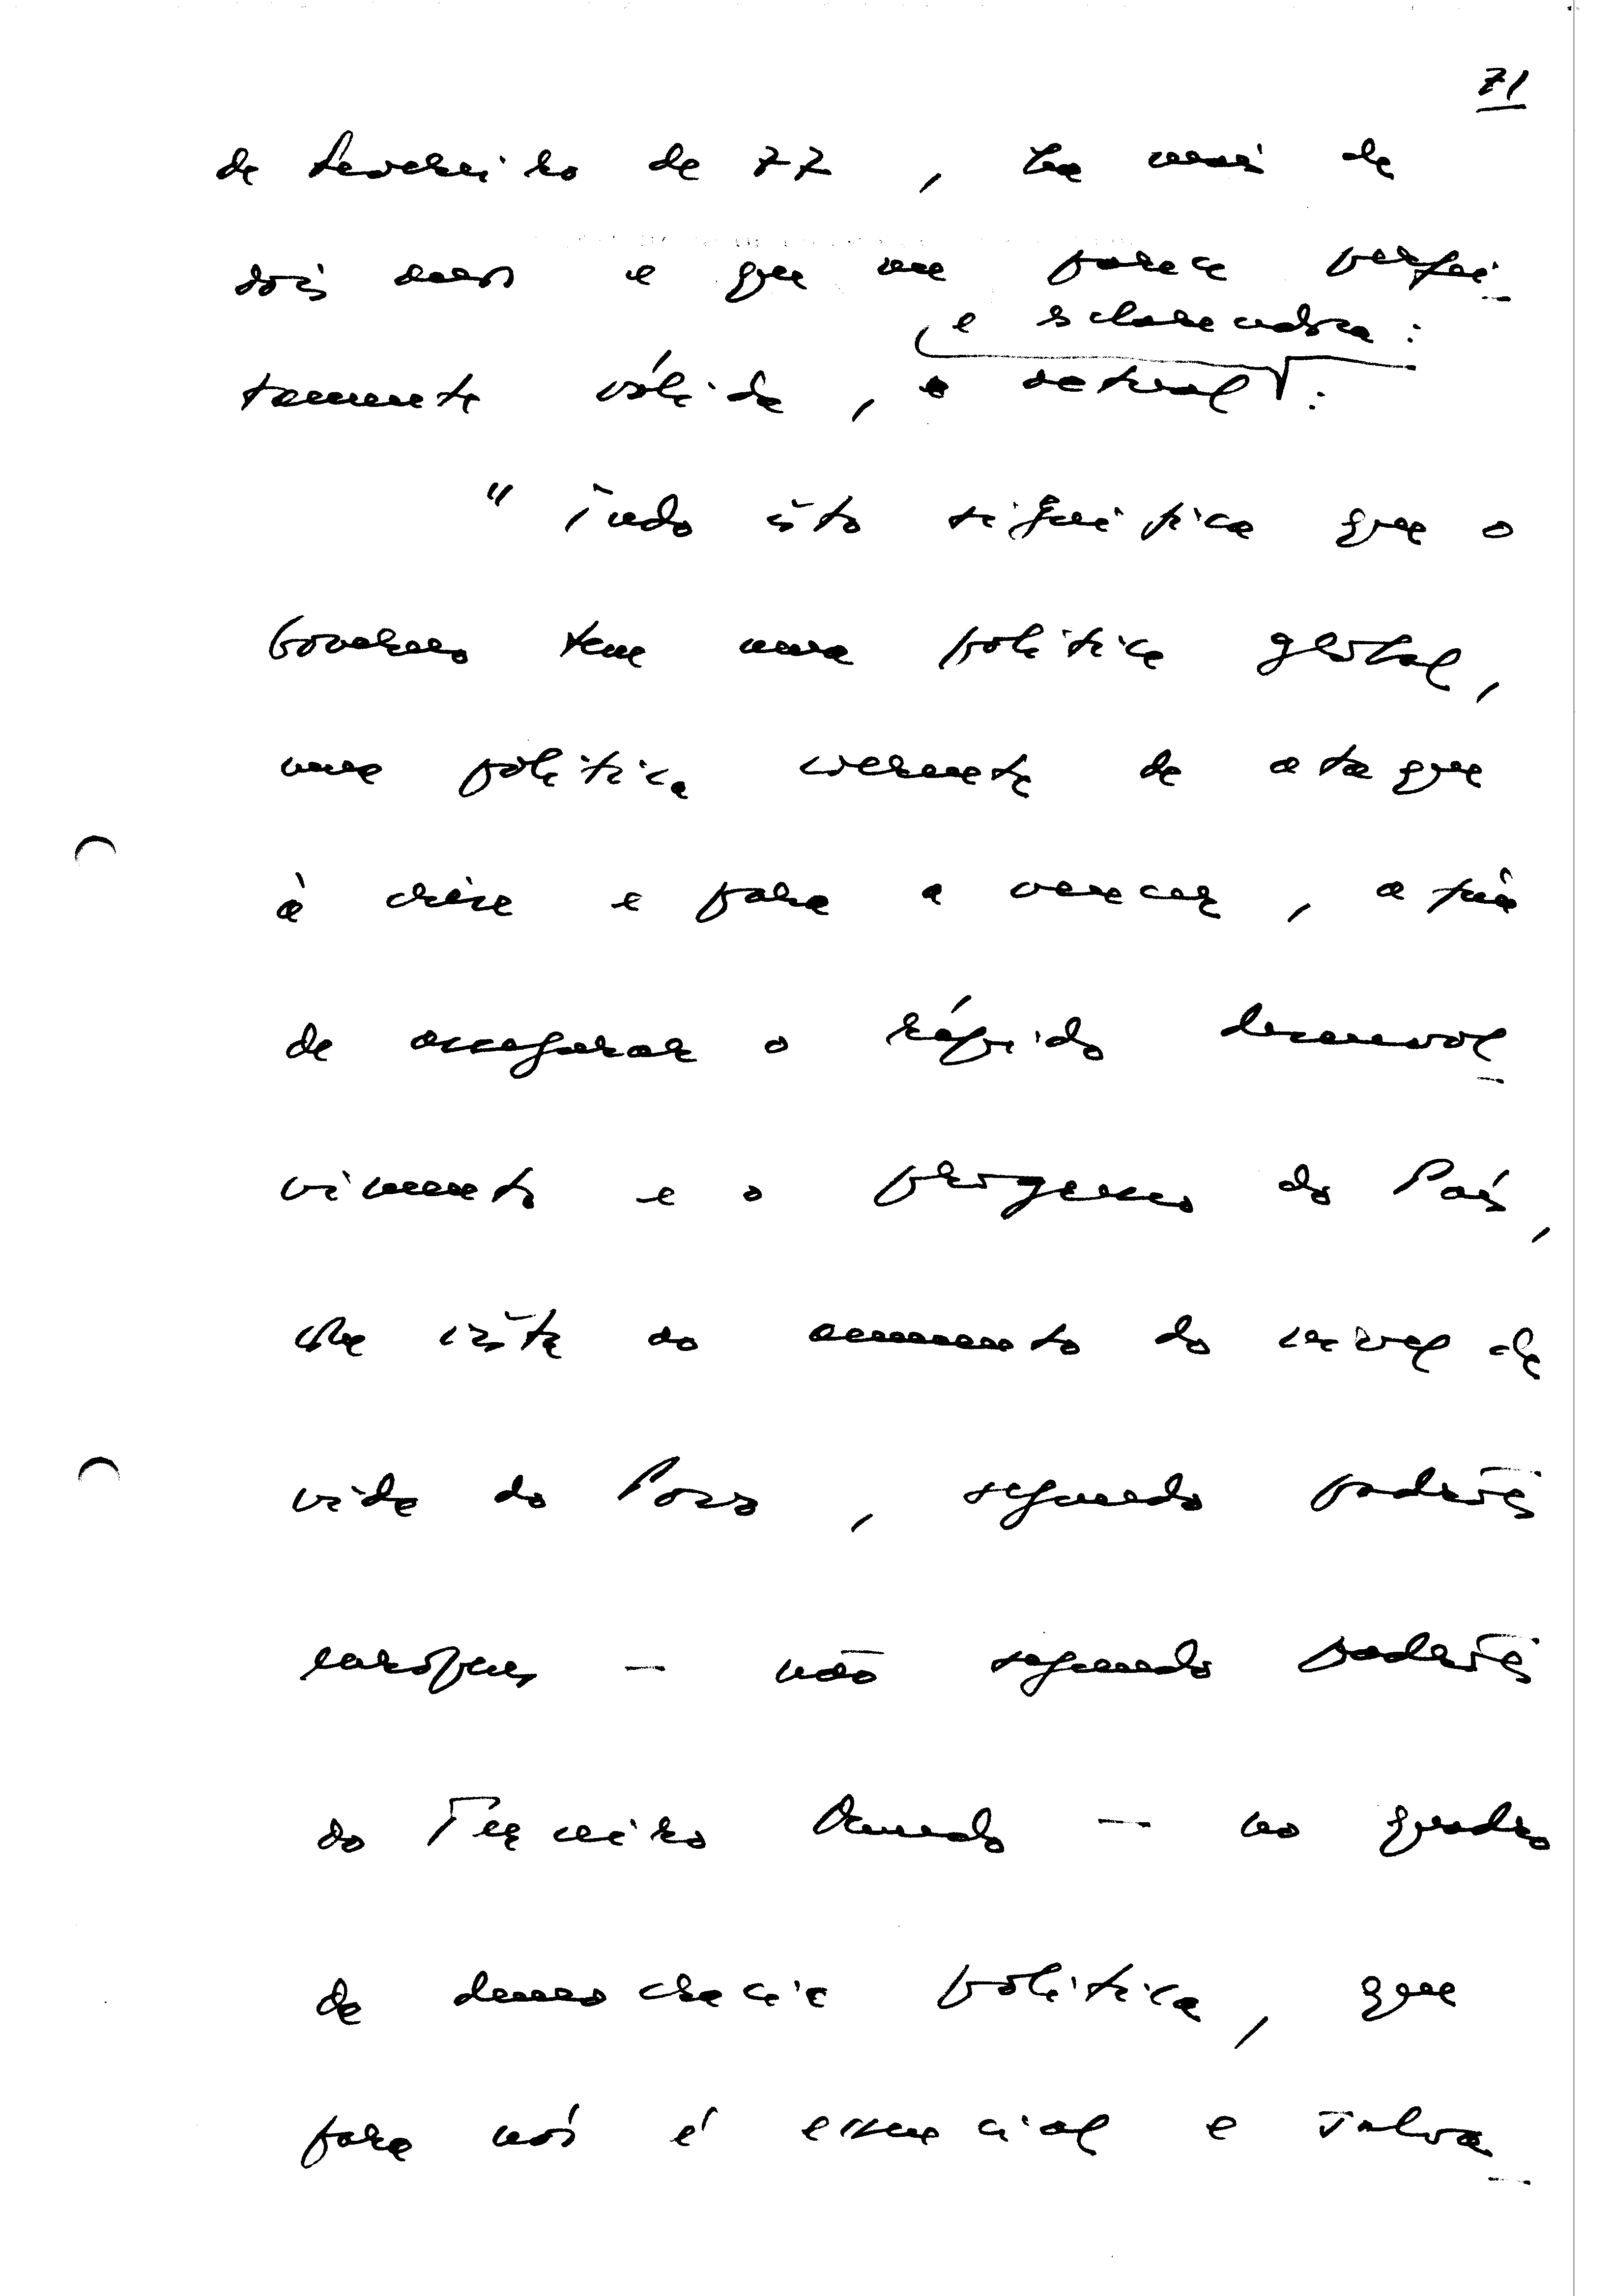 71
de Fevereiro de 77, há mais de
dois anos e que me parece perfei-
e esclarecedora:
tamente válida, e actual:
"Tudo isto significa que o
Governo tem uma política global,
uma política coerente de ataque
à crise e para a vencer, a fim
de assegurar o rápido desenvol-
vimento e o progresso do País,
na vista do aumento do nível de
vida do Povo, segundo padrões
europeus - não segundo padrões
do Terceiro Mundo - no quadro
da democracia política, que
para nós é essencial e salva-